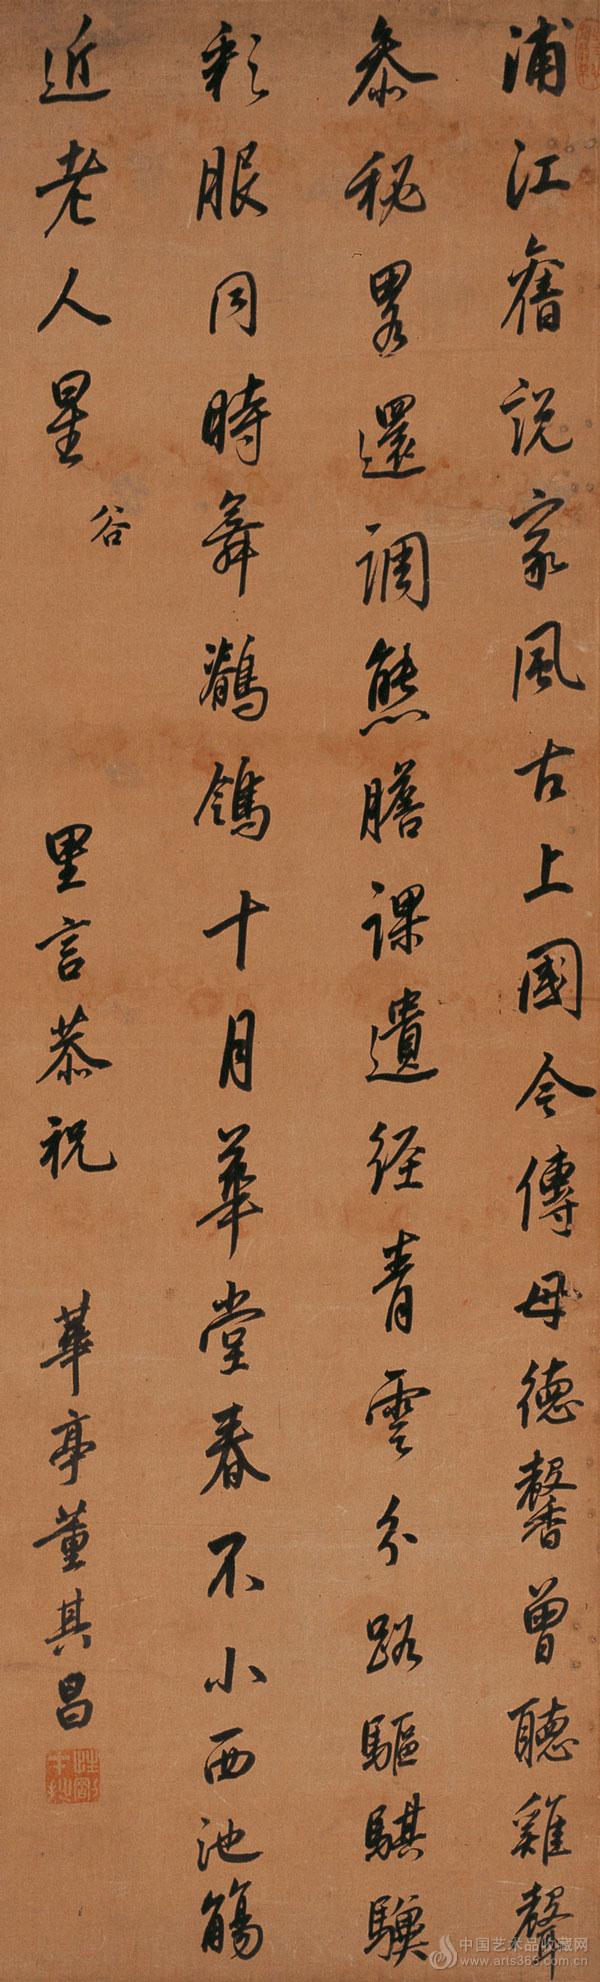 浦江舊說家風古上國今傳母德馨曾聽雞聲
叅秘畧還調熊膽課遺经青雲分路驅騏驥
彩服同時舞鶺鴒十月華堂春不小西池觴
近老人星
谷
里言恭祝 華亭董其昌
中国艺术品收藏网
www.arts365.com.cn